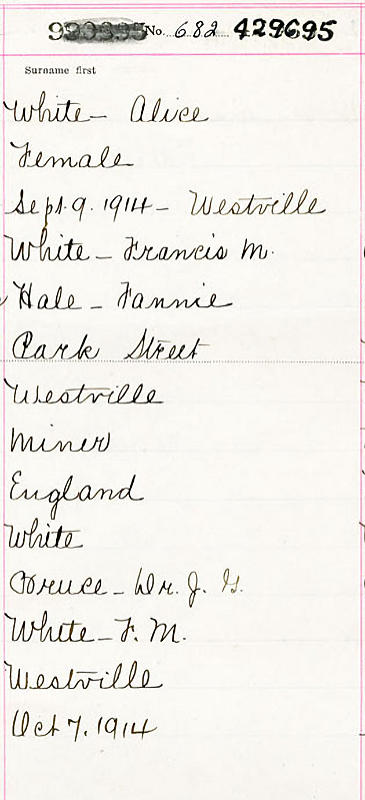 No. 682 429695
Surname first
White - Alice
Female
Sept. 9. 1914 - Westville
White - Francis M.
Hale - Fannie
Park Street
Westville
Miner
England
White
Bruce - Dr. J. G.
White - F. M.
Westville
Oct 7. 1914